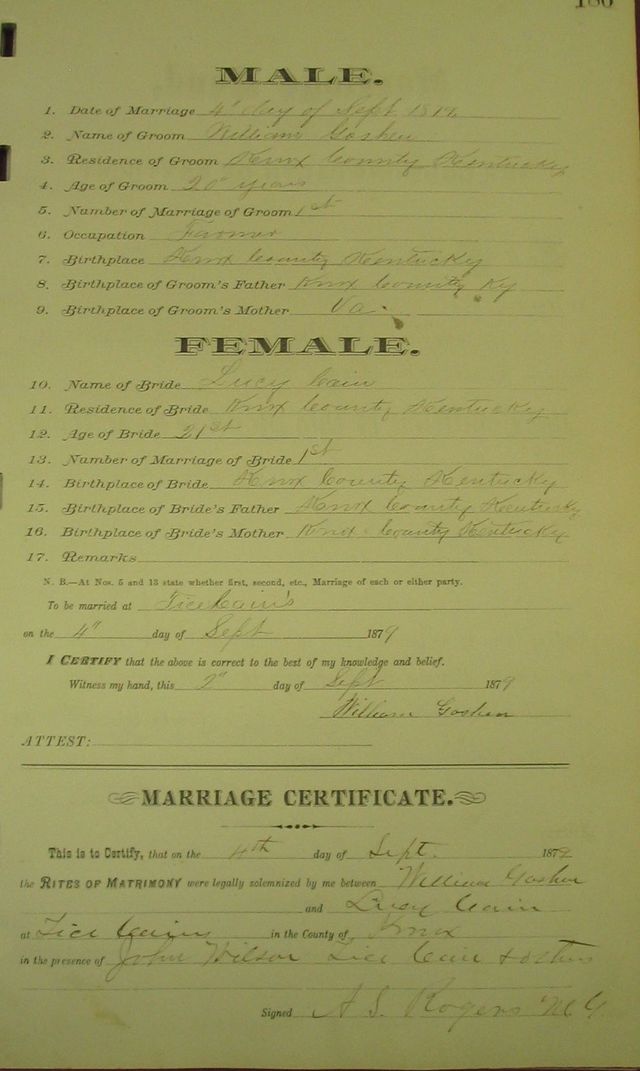 180
MALE.
1. Date of Marriage 4" day of Sept 1879
2. Name of Groom William Goshen
3. Residence of Groom Knox County Kentucky
4. Age of Groom 20" years
5. Number of Marriage of Groom 1st
6. Occupation Farmer
7. Birthplace Knox County Kentucky
8. Birthplace of Groom's Father Knox County Ky
9. Birthplace of Groom's Mother Va.
FEMALE.
10. Name of Bride Lucy Cain
11. Residence of Bride Knox County Kentucky
12. Age of Bride 21st
13. Number of Marriage of Bride 1st
14. Birthplace of Bride Knox County Kentucky
15. Birthplace of Bride's Father Knox County Kentucky
16. Birthplace of Bride's Mother Knox County Kentucky
17. Remarks
N. B.—At Nos. 5 and 13 state whether first, second, etc., Marriage of each or either party.
To be married at Tice Cain's
on the 4" day of Sept 1879
I CERTIFY that the above is correct to the best of my knowledge and belief.
Witness my hand, this 2" day of Sept 1879
William Goshen
ATTEST:
MARRIAGE CERTIFICATE.
This is to Certify, that on the 4th day of Sept. 1879
the RITES OF MATRIMONY were legally solemnized by me between William Goshen
and Lucy Cain
at Tice Cains in the County of Knox
in the presence of John Wilson Tice Cain & others
Signed A. S. Rogers M. G.